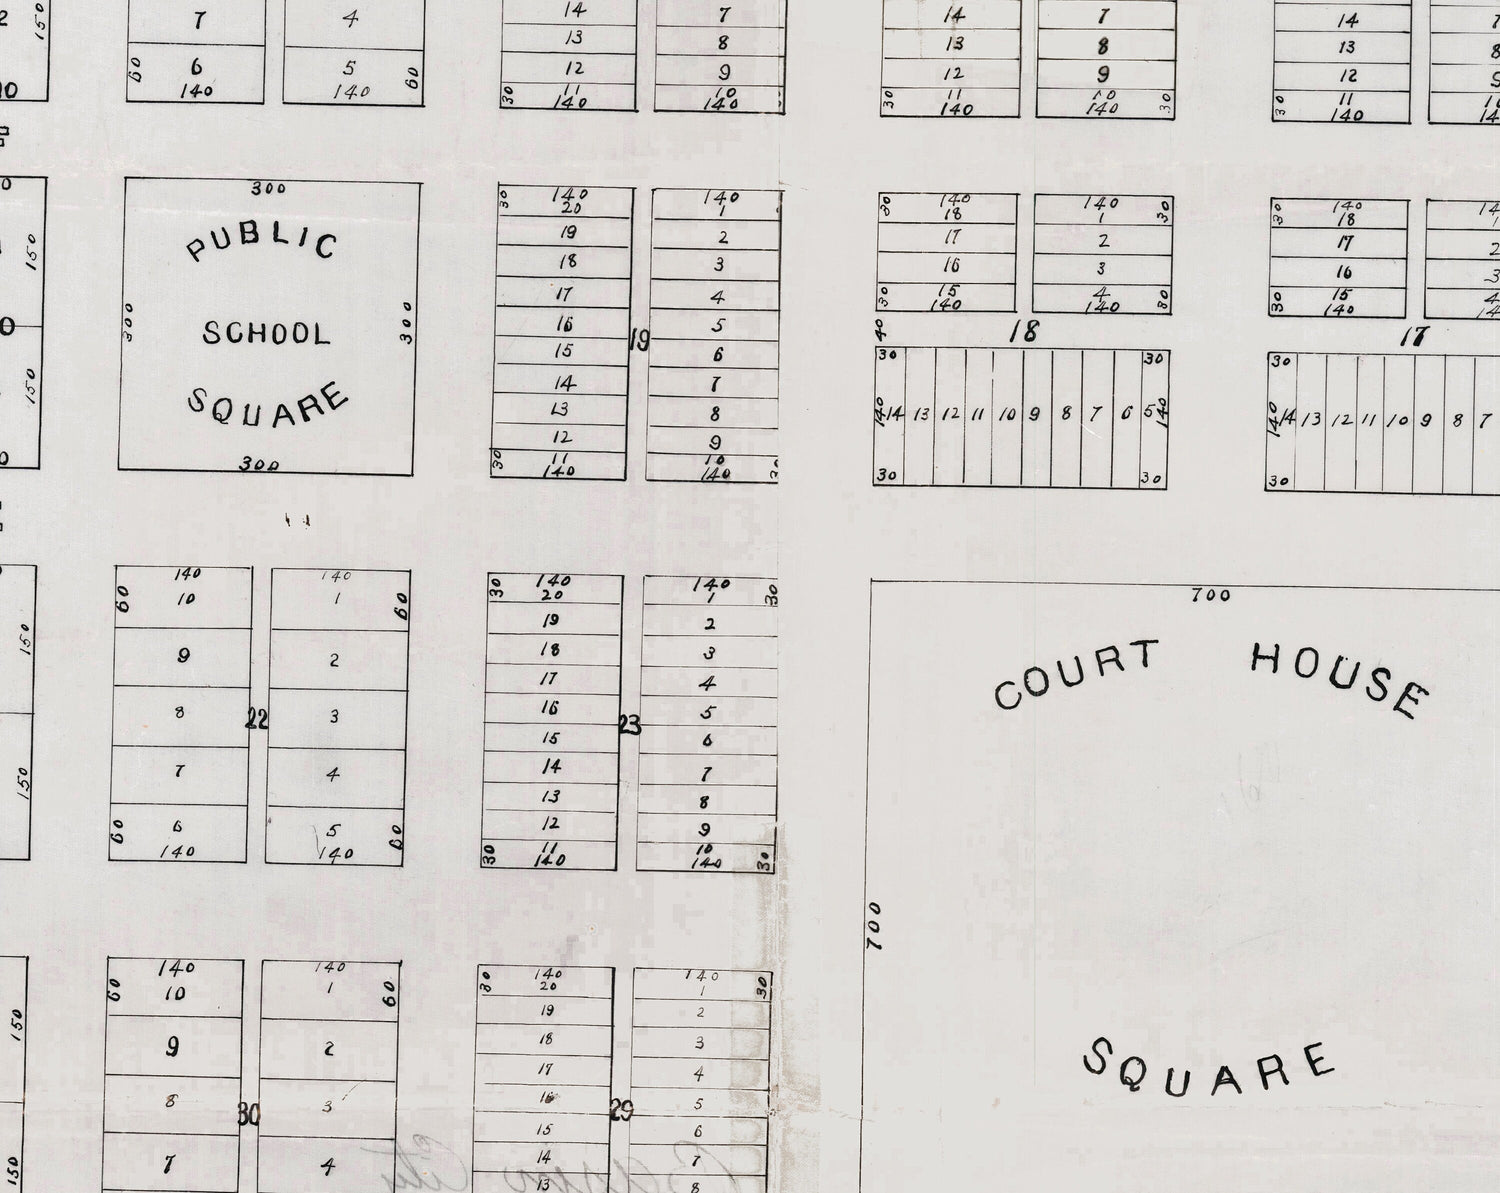 7 4
6 5
60 60
140 140
150
14 7
13 8
12 9
11 10
30 140 140
14 7
13 8
12 9
11 10
30 140 140 30
14
13
12
11
30 140
300
PUBLIC
300 SCHOOL 300
SQUARE
300
150
150
30 140 140
20 1
19 2
18 3
17 4
16 5
19
15 6
14 7
13 8
12 9
11 10
30 140 140
30 140 140 30
18 1
17 2
16 3
15 4
30 140 140 30
40 18
30 30
140 14 13 12 11 10 9 8 7 6 5 140
30 30
30 140
18
17 2
16 3
15 4
30 140
17
30
140 14 13 12 11 10 9 8 7
30
150
150
140 140
60 10 1 60
9 2
8 22 3
7 4
60 6 5 60
140 140
30 140 140 30
20 1
19 2
18 3
17 4
16 5
23
15 6
14 7
13 8
12 9
11 10
30 140 140 30
700
COURT HOUSE
700
SQUARE
150
150
140 140
60 10 1 60
9 2
8 30 3
7 4
30 140 140 30
20 1
19 2
18 3
17 4
16 29 5
15 6
14 7
13 8